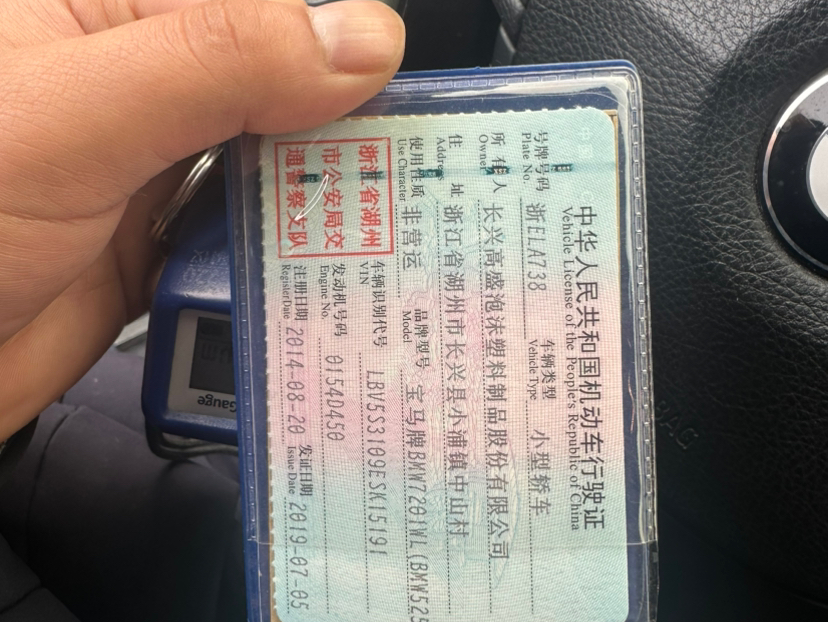 中华人民共和国机动车行驶证
Vehicle License of the People's Republic of China
号牌号码 浙ELA738 车辆类型 小型轿车
Plate No. Vehicle Type
所有人 长兴高盛泡沫塑料制品股份有限公司
Owner
住址 浙江省湖州市长兴县小浦镇中山村
Address
使用性质 非营运 品牌型号 宝马牌BMW7201WL(BMW525
Use Character Model
浙江省湖州
市公安局交
通警察支队
车辆识别代号 LBV5S3109ESK15191
VIN
发动机号码 0154D450
Engine No.
注册日期 2014-08-20 发证日期 2019-07-05
Register Date Issue Date
Gauge